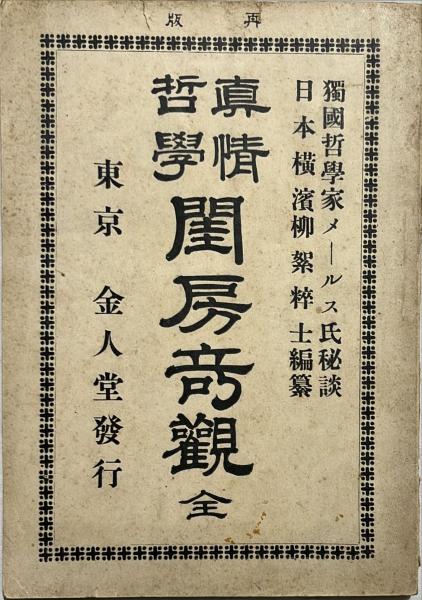 再版
獨國哲學家メールス氏秘談
日本橫濱柳絮粹士編纂
眞情
哲學
閨房奇觀 全
東京 金人堂發行